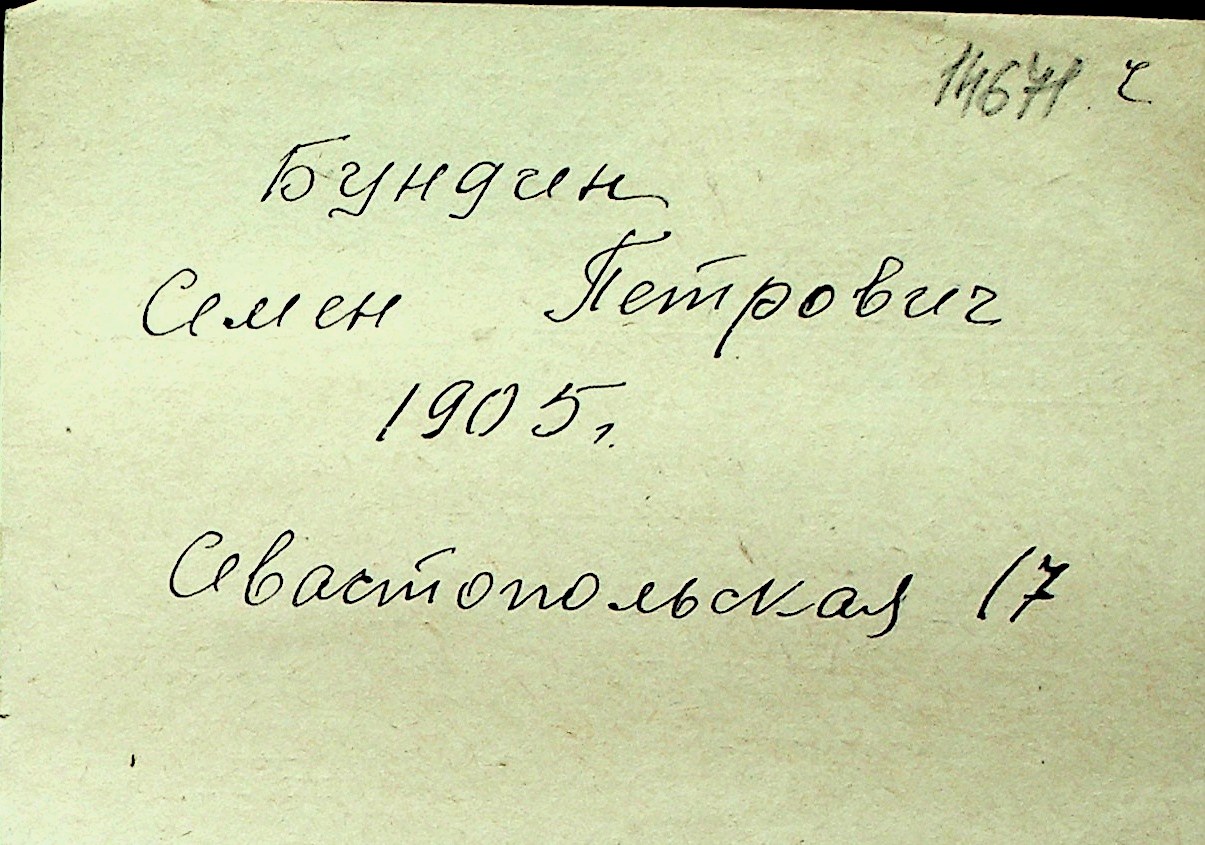 14671 ч
Бундин
Семен Петрович
1905г.
Севастопольская 17